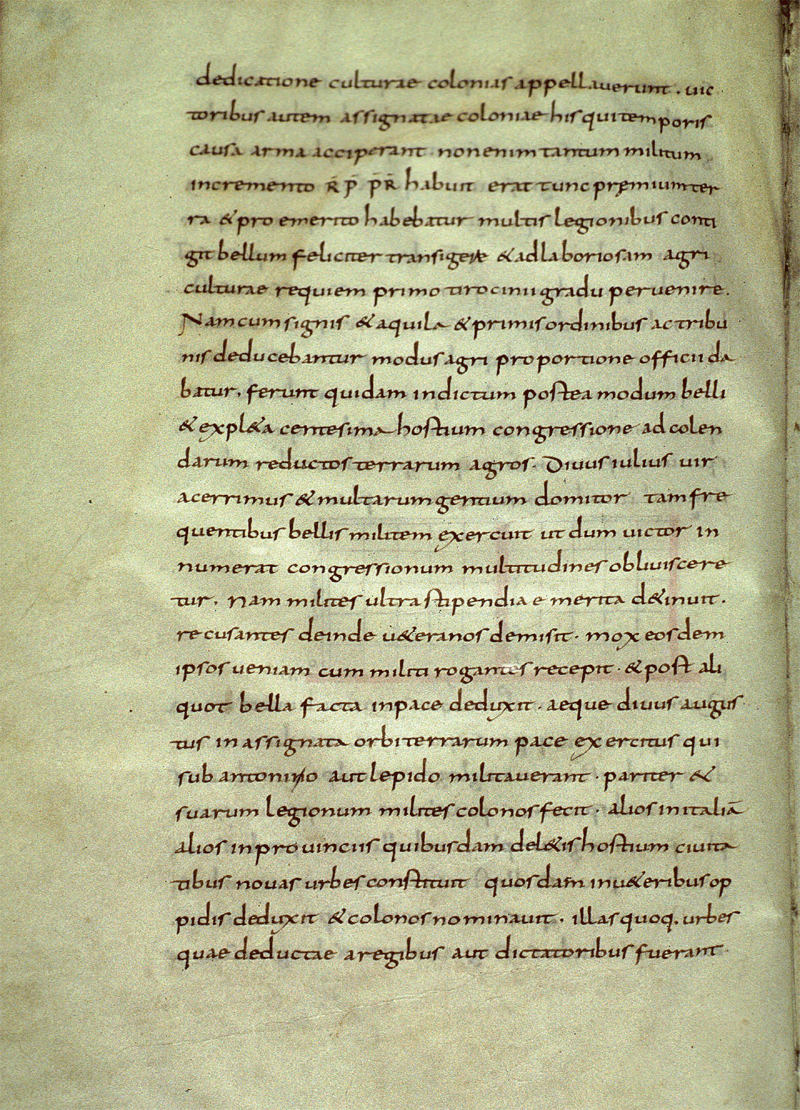 dedicatione culturae colonias appellauerunt. uic
toribus autem assignatae coloniae his qui temporis
causa arma acciperant non enim tantum militum
incremento R̄ P̄ P̄R̄ habuit erat tunc premium ter
ra &pro emerito habebatur multis legionibus conti
git bellum feliciter transigere &ad laboriosam agri
culturae requiem primo tirocinii gradu peruenire.
Nam cum signis &aquila &primis ordinibus ac tribu
nis deducebantur modus agri pro portione officii da
batur. ferunt quidam indictum postea modum belli
&expl&a centesima hostium congressione ad colen
darum reductos terrarum agros. Diuus iulius uir
acerrimus &multarum gentium domitor tam fre
quentibus bellis militem exercuit ut dum uictor in
numerat congressionum multitudines obliuiscere
tur. Nam milites ultra stipendia emerita d&inuit.
recusantes deinde u&eranos demisit. mox eosdem
ipsos ueniam cum militi rogantes recepit. &post ali
quot bella facta in pace deduxit. aeque diuus augus
tus in assignata orbi terrarum pace exercitus qui
sub antonino aut lepido militauerant. pariter &
suarum legionum milites colonos fecit. alios in italiā
alios in prouinciis quibusdam del&is hostium ciuita
tibus nouas urbes constituit quosdam in u&eribus op
pidis deduxit &colonos nominauit. illas quoq. urbes
quae deductae a regibus aut dictatoribus fuerant